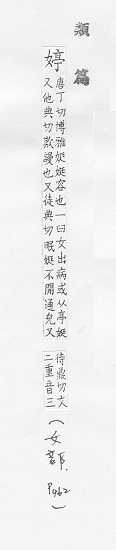 類篇
婷
唐丁切博雅娗娗容也一曰女出病或从亭娗
又他典切欺謾也又徒典切眠娗不開通皃又
待鼎切文
二重音三
(女部,
P462)